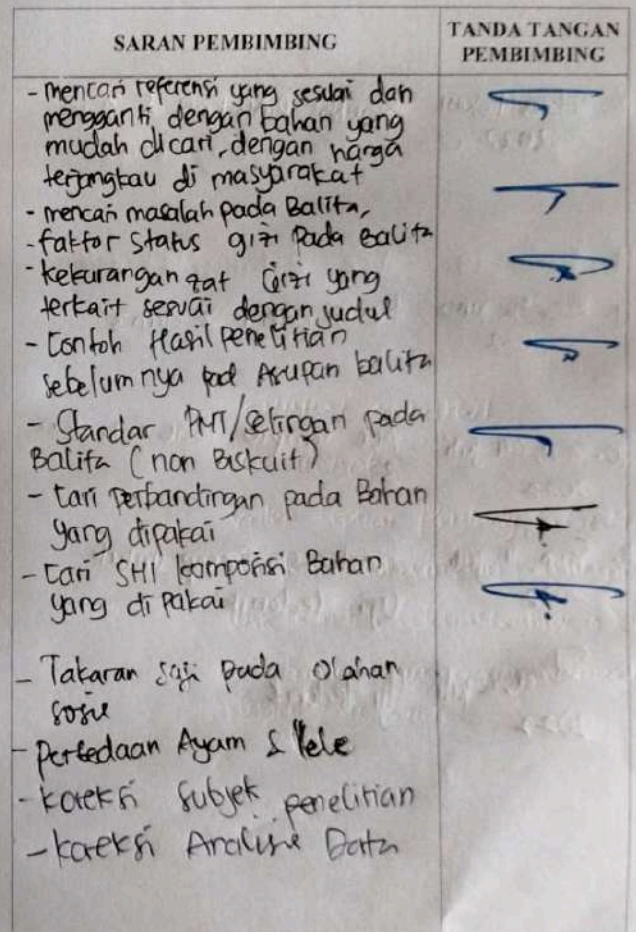 SARAN PEMBIMBING
TANDA TANGAN
PEMBIMBING
- mencari referensi yang sesuai dan
mengganti dengan bahan yang
mudah dicari, dengan harga
terjangkau di masyarakat
- mencari masalah pada Balita,
- faktor Status gizi pada Balita
- kekurangan zat Gizi yang
terkait sesuai dengan judul
- Contoh Hasil penelitian
sebelumnya Asupan balita
- Standar PMT/selingan pada
Balita (non Biskuit)
- Cari Perbandingan pada Bahan
yang dipakai
- Cari SNI komposisi Bahan
yang di pakai
- Takaran saji pada Olahan
sosis
- perbedaan Ayam & lele
- koreksi Subjek penelitian
- koreksi Analisis Data